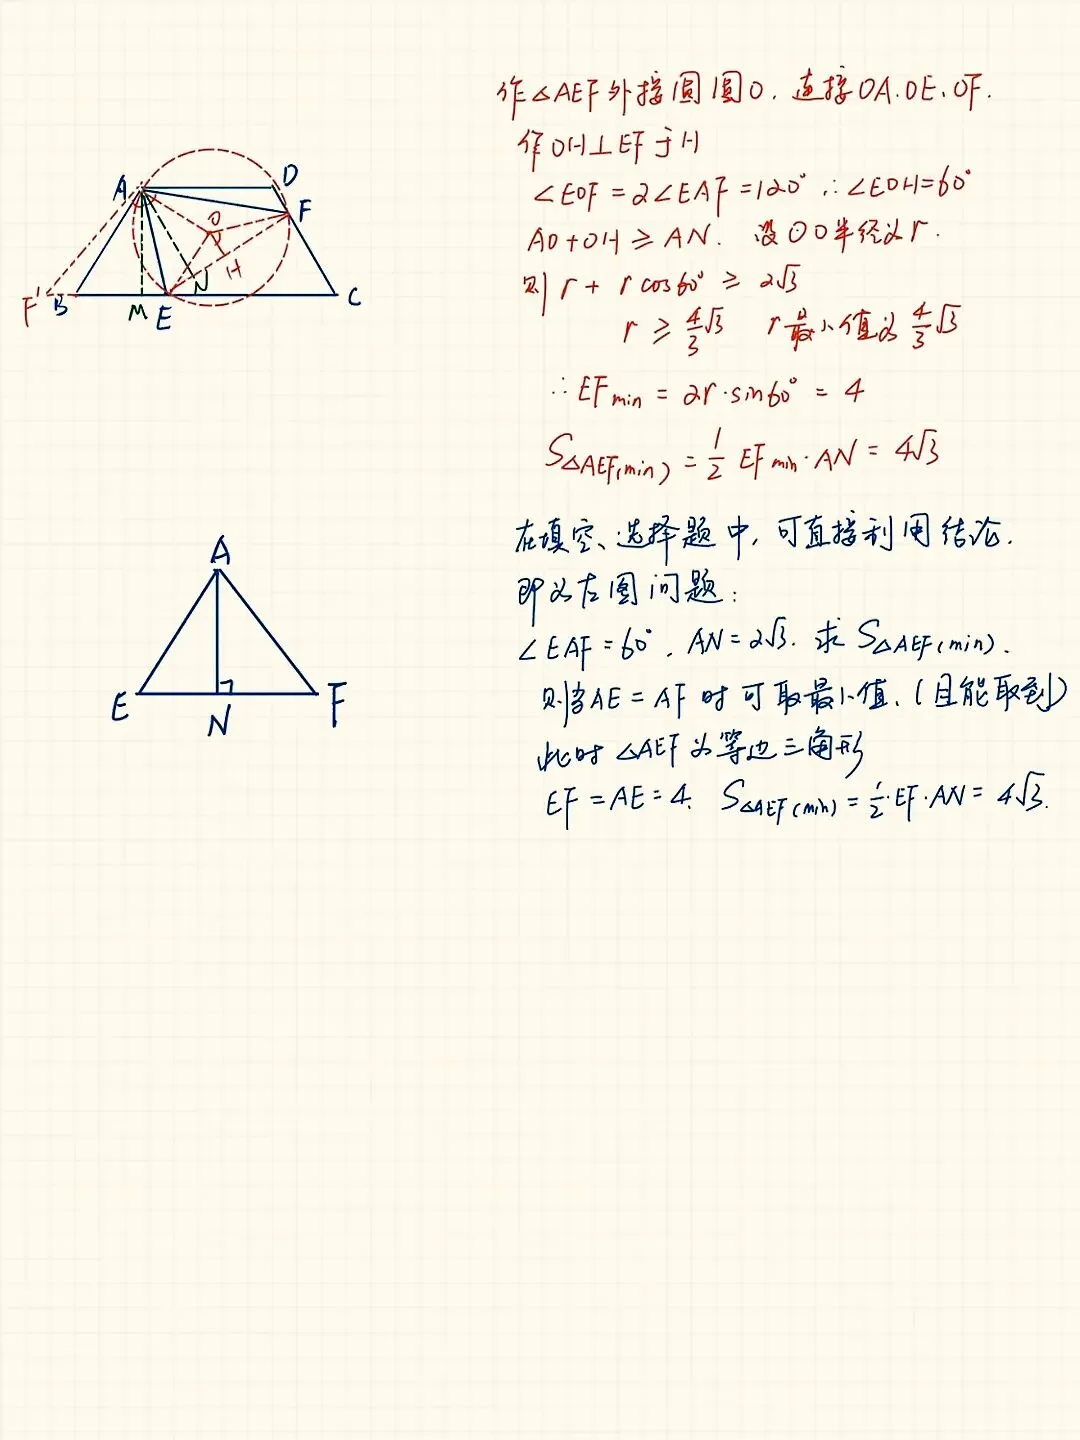 作△AEF外接圆圆O.连接OA.OE、OF.
作OH⊥EF于H
∠EOF=2∠EAF=120° ∴∠EOH=60°
AO+OH≥AN. 设⊙O半径为r.
则 r + r cos60° ≥ 2√3
r ≥ 4/3√3 r最小值为4/3√3
∴EFmin = 2r·sin60° = 4
S△AEF(min) = 1/2 EFmin·AN = 4√3
A
D
F
O
H
N
F'
B
M
E
C
在填空、选择题中,可直接利用结论.
即如左图问题:
∠EAF=60°. AN=2√3. 求 S△AEF(min).
则当AE=AF时可取最小值.(且能取到)
此时△AEF为等边三角形
EF=AE=4. S△AEF(min)=1/2·EF·AN=4√3.
A
E
N
F